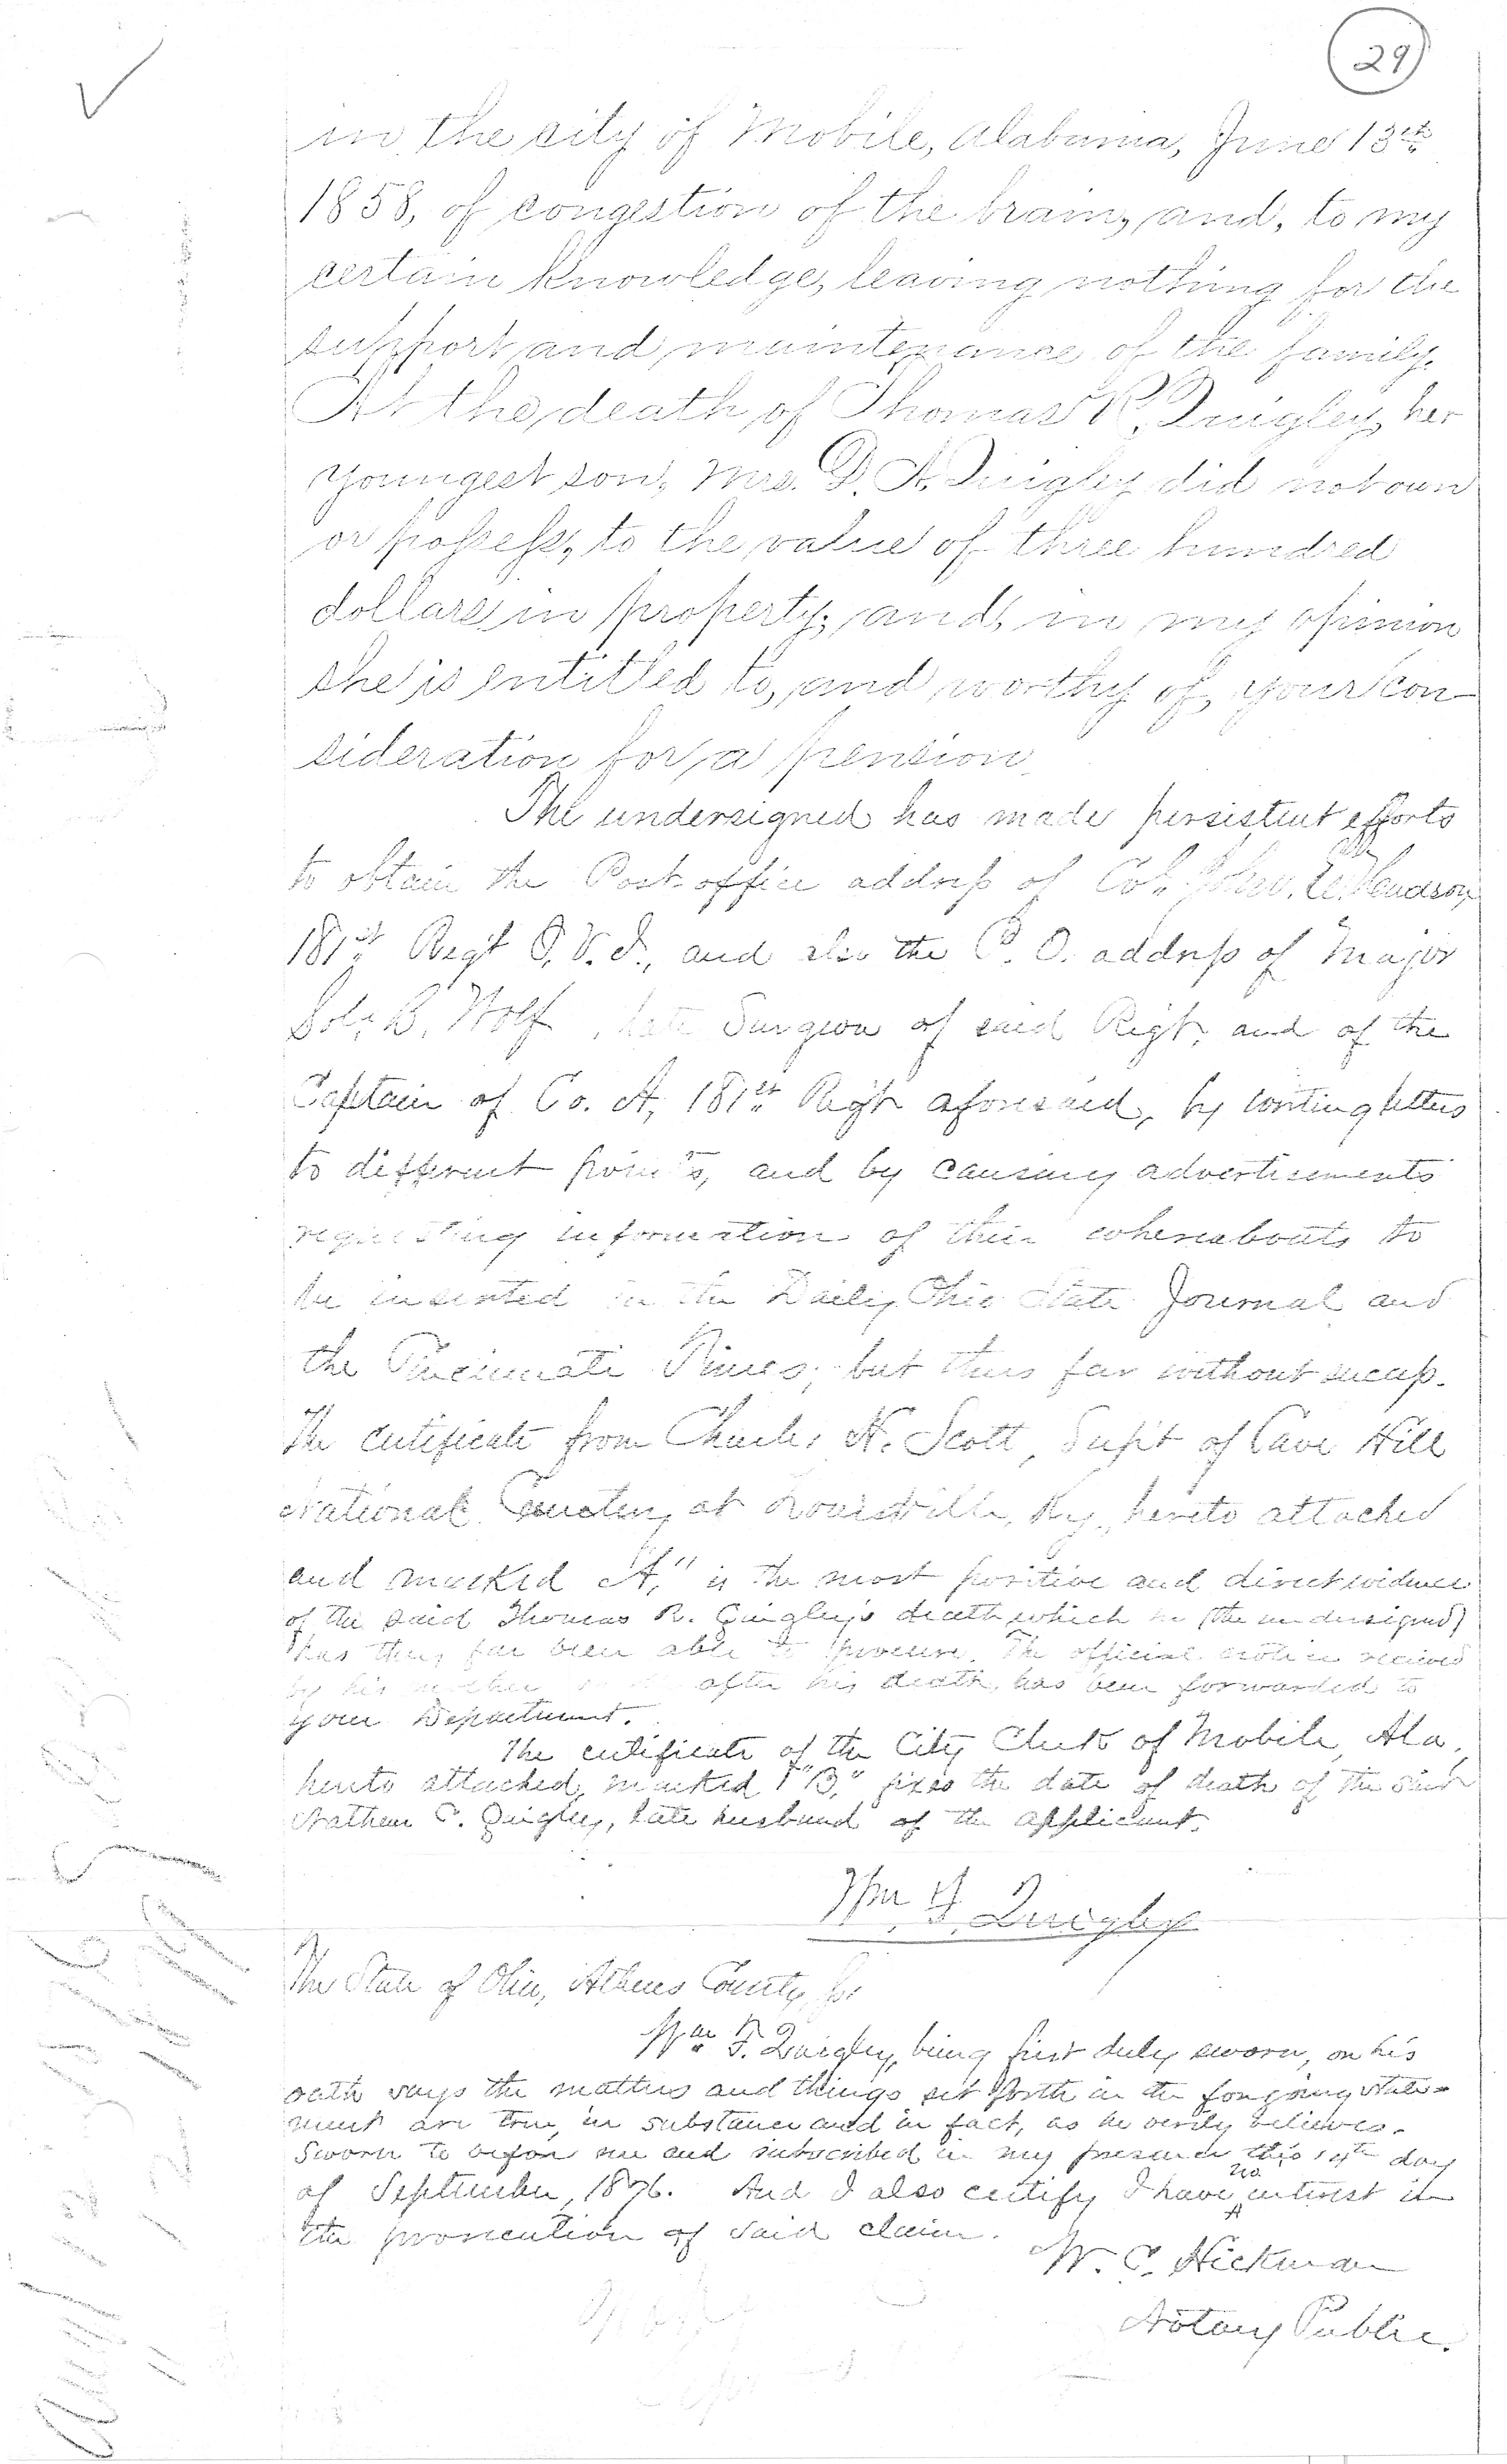 29
in the city of Mobile, Alabama, June 13th
1858, of congestion of the brain, and, to my
certain knowledge, leaving nothing for the
support and maintenance of the family.
At the death of Thomas R. Quigley, her
youngest son, Mrs. D. A. Quigley did not own
or possess, to the value of three hundred
dollars in property; and, in my opinion
she is entitled to, and worthy of, your con-
sideration for a pension.
The undersigned has made persistent efforts
to obtain the Post-office address of Col. John E. Hudson
181st Regt O.V.I., and also the P.O. address of Major
Sol. B. Wolf, late Surgeon of said Regt, and of the
Captain of Co. A, 181st Regt aforesaid, by writing letters
to different points, and by causing advertisements
requesting information of their whereabouts to
be inserted in the Daily Ohio State Journal and
the Cincinnati Times; but thus far without success.
The certificate from Charles N. Scott, Supt of Cave Hill
National Cemetery, at Louisville, Ky., hereto attached
and marked "A," is the most positive and direct evidence
of the said Thomas R. Quigley's death which he (the undersigned)
has thus far been able to procure. The official notice received
by his mother after his death, has been forwarded to
your Department.
The certificate of the City Clerk of Mobile, Ala,
hereto attached, marked "B," fixes the date of death of the said
Nathan C. Quigley, late husband of the applicant.
Wm F. Quigley
The State of Ohio, Athens County, ss.
Wm F. Quigley, being first duly sworn, on his
oath says the matters and things set forth in the foregoing state-
ment are true, in substance and in fact, as he verily believes.
Sworn to before me and subscribed in my presence this day
of September, 1876. And I also certify I have no interest in
the prosecution of said claim.
W. C. Hickman
Notary Public.